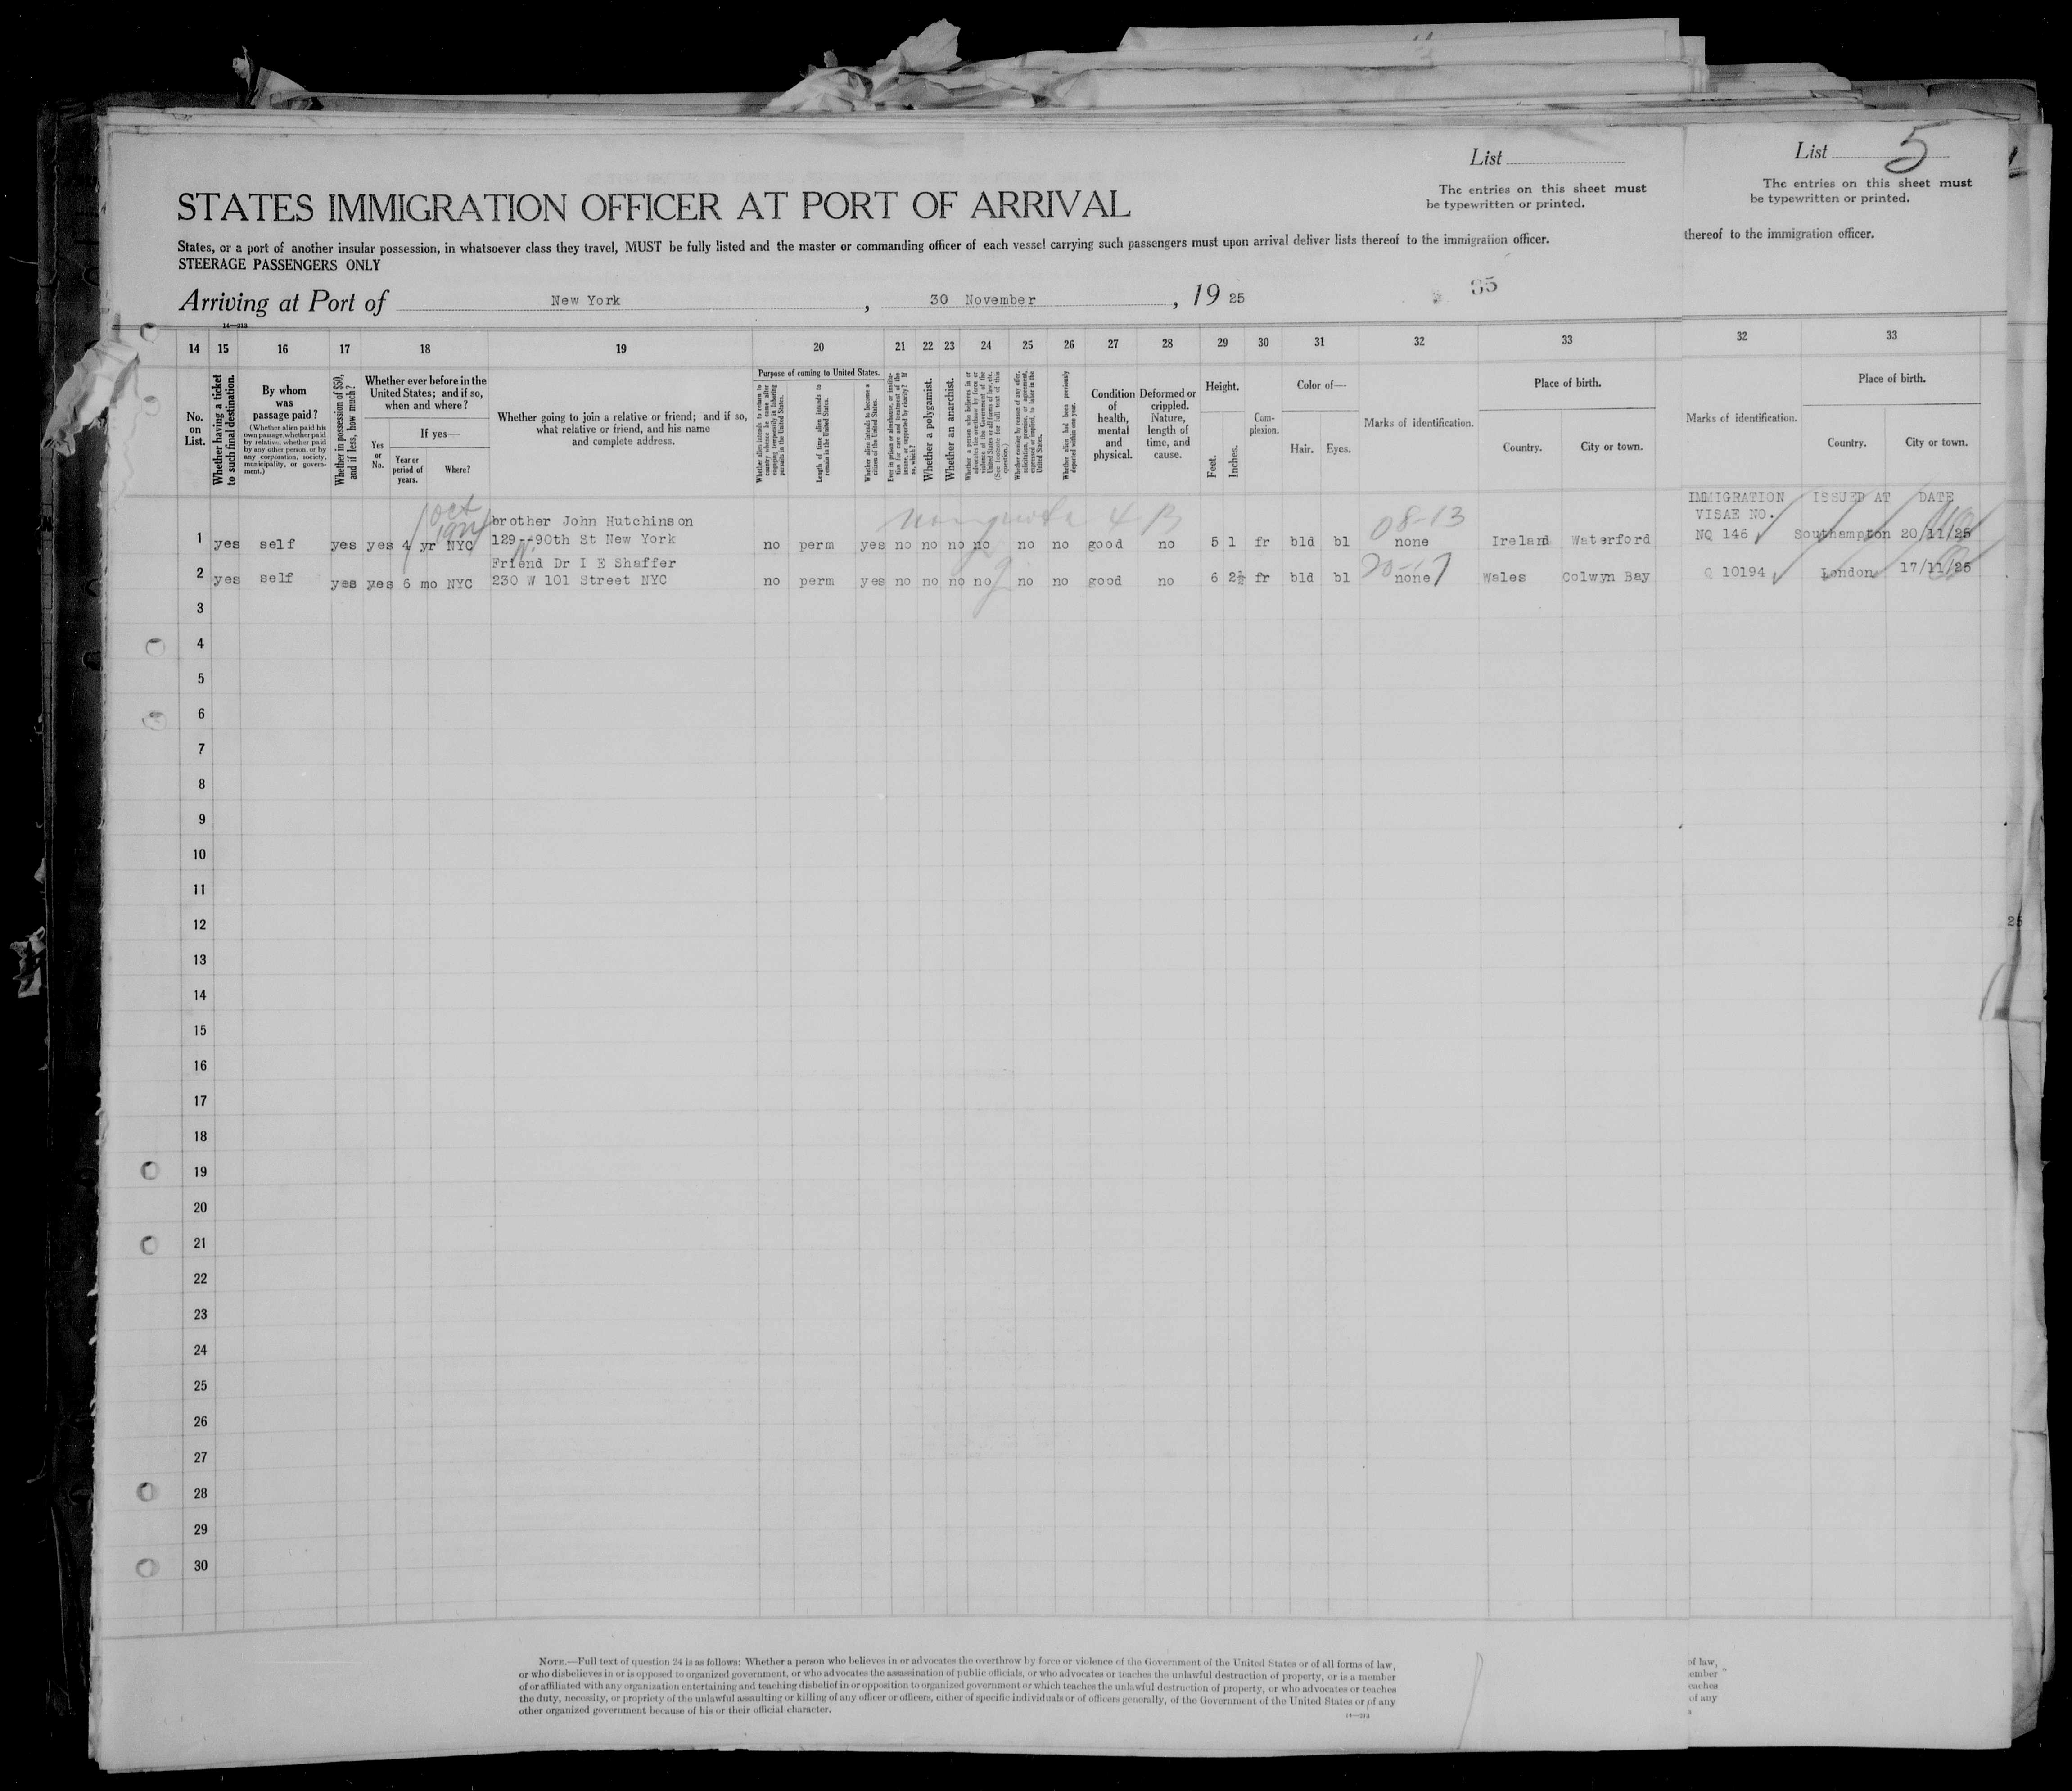 List
The entries on this sheet must
be typewritten or printed.
List 5
The entries on this sheet must
be typewritten or printed.
STATES IMMIGRATION OFFICER AT PORT OF ARRIVAL
States, or a port of another insular possession, in whatsoever class they travel, MUST be fully listed and the master or commanding officer of each vessel carrying such passengers must upon arrival deliver lists thereof to the immigration officer.
thereof to the immigration officer.
STEERAGE PASSENGERS ONLY
Arriving at Port of New York, 30 November, 19 25
14—213
14 15 16 17 18 19 20 21 22 23 24 25 26 27 28 29 30 31 32 33
32 33
No. on List.
Whether having a ticket to such final destination.
By whom was passage paid?
(Whether alien paid his own passage, whether paid by relative, whether paid by any other person, or by any corporation, society, municipality, or government.)
Whether in possession of $50, and if less, how much?
Whether ever before in the United States; and if so, when and where?
Yes or No.
If yes—
Year or period of years.
Where?
Whether going to join a relative or friend; and if so, what relative or friend, and his name and complete address.
Purpose of coming to United States.
Whether alien intends to return to country whence he came after engaging temporarily in laboring pursuits in the United States.
Length of time alien intends to remain in the United States.
Whether alien intends to become a citizen of the United States.
Ever in prison or almshouse, or institution for care and treatment of the insane, or supported by charity? If so, which?
Whether a polygamist.
Whether an anarchist.
Whether a person who believes in or advocates the overthrow by force or violence of the Government of the United States or all forms of law, etc. (See footnote for full text of this question.)
Whether coming by reason of any offer, solicitation, promise, or agreement, expressed or implied, to labor in the United States.
Whether alien had been previously deported within one year.
Condition of health, mental and physical.
Deformed or crippled. Nature, length of time, and cause.
Height.
Feet. Inches.
Complexion.
Color of—
Hair. Eyes.
Marks of identification.
Place of birth.
Country. City or town.
Marks of identification.
Place of birth.
Country. City or town.
IMMIGRATION VISAE NO. ISSUED AT DATE
Oct 1924
Nonquota 4 B
08-13
brother John Hutchinson
1 yes self yes yes 4 yr NYC 129--90th St New York no perm yes no no no no no no good no 5 1 fr bld bl none Ireland Waterford NQ 146 Southampton 20/11/25
Friend Dr I E Shaffer
2 yes self yes yes 6 mo NYC 230 W 101 Street NYC no perm yes no no no no no no good no 6 2½ fr bld bl none Wales Colwyn Bay Q 10194 London 17/11/25
3
4
5
6
7
8
9
10
11
12
13
14
15
16
17
18
19
20
21
22
23
24
25
26
27
28
29
30
NOTE.—Full text of question 24 is as follows: Whether a person who believes in or advocates the overthrow by force or violence of the Government of the United States or of all forms of law,
or who disbelieves in or is opposed to organized government, or who advocates the assassination of public officials, or who advocates or teaches the unlawful destruction of property, or is a member
of or affiliated with any organization entertaining and teaching disbelief in or opposition to organized government or which teaches the unlawful destruction of property, or who advocates or teaches
the duty, necessity, or propriety of the unlawful assaulting or killing of any officer or officers, either of specific individuals or of officers generally, of the Government of the United States or of any
other organized government because of his or their official character.
14—213
of law,
ember
eaches
of any
25